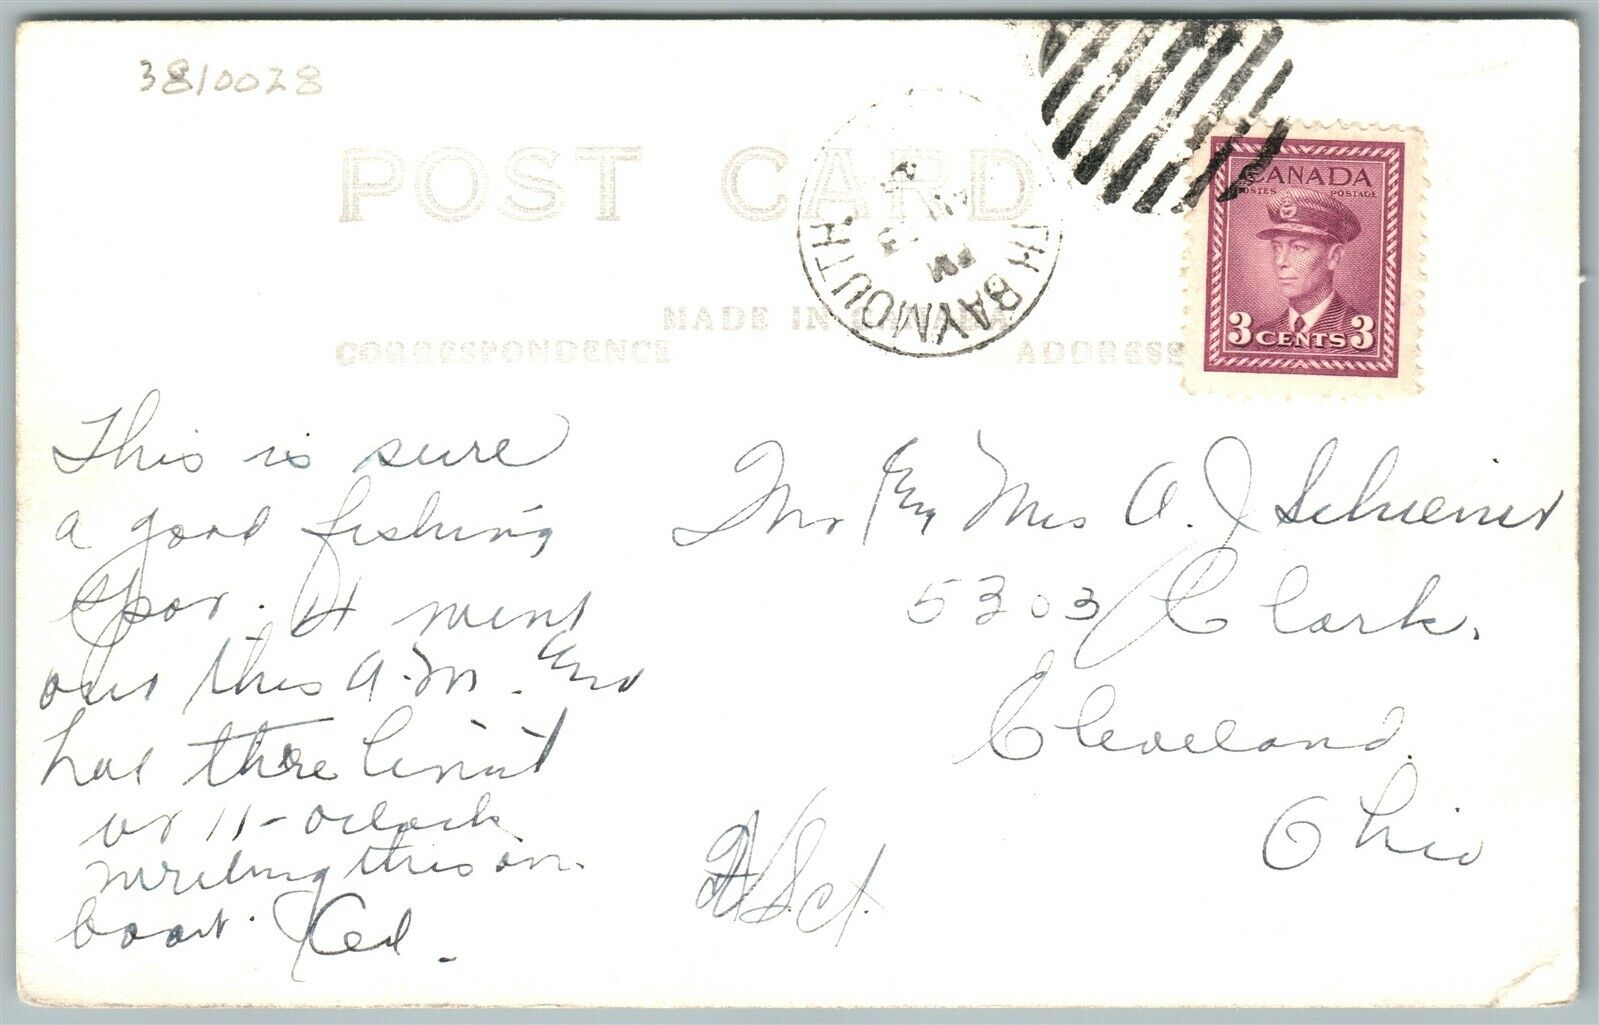 3810028
POST CARD
TH BAYMOUTH.
PM
CANADA
POSTES POSTAGE
3 CENTS 3
MADE IN CANADA
CORRESPONDENCE ADDRESS
This is sure
a good fishing
spot. It went
out this A.M. and
had three limit
at 11-oclock
writing this on
boat. Ted.
Mr and Mrs A. J
5303 Clark.
Cleveland.
Ohio